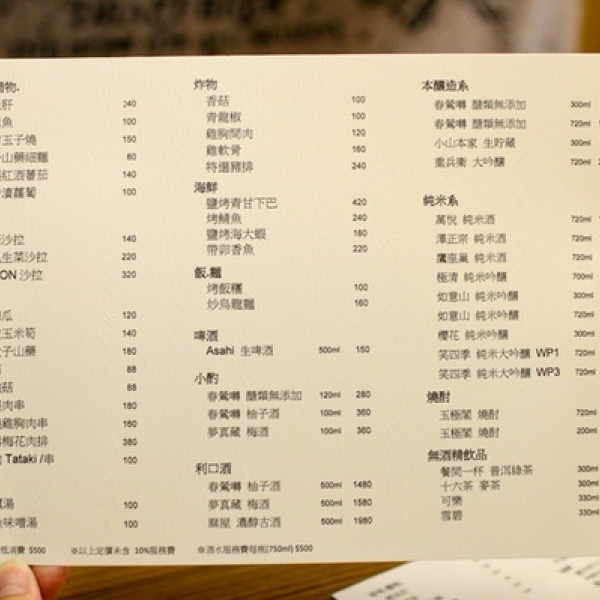 物.
肝 240
魚 100
玉子燒 150
山藥細麵 80
紅酒蕃茄 140
漬蘿蔔 100
沙拉 140
生菜沙拉 220
ON 沙拉 320
瓜 120
玉米筍 140
子山藥 180
88
菇 88
肉串 180
雞胸肉串 160
梅花肉排 380
Tataki /串 100
湯 100
味噌湯 100
低消費 $500
炸物
香菇 100
青龍椒 100
雞胸間肉 120
雞軟骨 160
特選豬排 240
海鮮
鹽烤青甘下巴 420
烤鯖魚 240
鹽烤海大蝦 180
帶卵香魚 220
飯.麵
烤飯糰 100
炒烏龍麵 160
啤酒
Asahi 生啤酒 500ml 150
小酌
春鶯囀 醣類無添加 120ml 280
春鶯囀 柚子酒 100ml 360
夢真藏 梅酒 100ml 360
利口酒
春鶯囀 柚子酒 500ml 1480
夢真藏 梅酒 500ml 1580
麻屋 濃醇古酒 500ml 1980
※以上定價未含 10%服務費
※酒水服務費每瓶(750ml) $500
本釀造系
春鶯囀 醣類無添加 300ml
春鶯囀 醣類無添加 720ml
小山本家 生貯藏 300ml
重兵衛 大吟釀 720ml
純米系
萬悅 純米酒 720ml
澤正宗 純米酒 720ml
鷹座巢 純米酒 720ml
極清 純米吟釀 700ml
如意山 純米吟釀 300ml
如意山 純米吟釀 720ml
櫻花 純米吟釀 300ml
笑四季 純米大吟釀 WP1 720ml
笑四季 純米大吟釀 WP3 720ml
燒酎
玉極閣 燒酎 720ml
玉極閣 燒酎 200ml
無酒精飲品
餐間一杯 普洱綠茶 300ml
十六茶 麥茶 300ml
可樂 330ml
雪碧 330ml